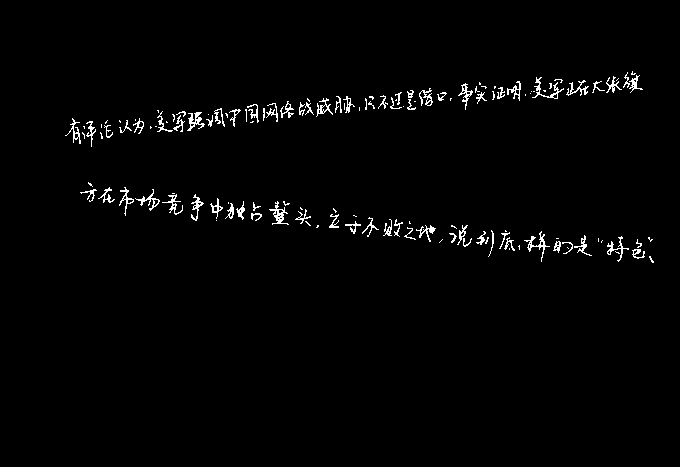 有评论认为,美军强调中国网络战威胁,只不过是借口,事实证明,美军正在大张旗
方在市场竞争中独占鳌头,立于不败之地,说到底,拼的是“特色”、